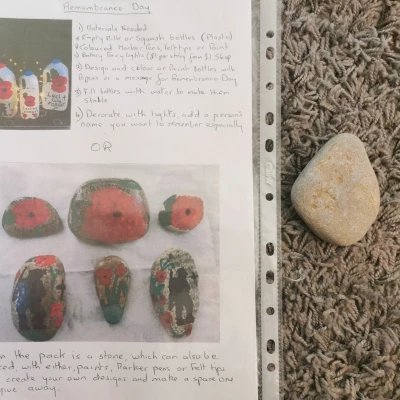 Remembrance Day
1) Materials Needed
* Empty Milk or Squash bottles (Plastic)
* Coloured Marker Pens, felt tips or Paint
* Battery Fairy lights (£1 per string from £1 Shop
2) Design and colour or Paint bottles with
Figures or a message for Remembrance Day
3) Fill bottles with water to make them
stable
4) Decorate with lights, add a person's
name you want to remember especially
OR
the pack is a stone, which can also be
with either, paints, Marker pens or Felt tips
create your own designs and make a spare one
away.